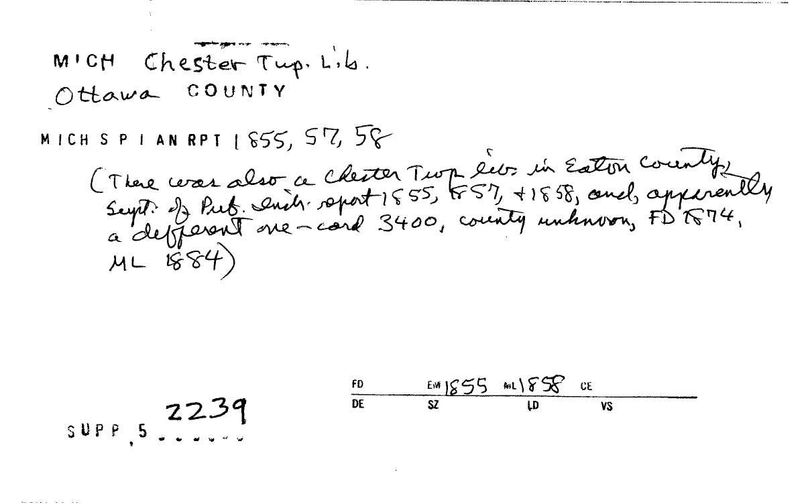 MICH Chester Twp. Lib.
Ottawa COUNTY
MICH S P I AN RPT 1855, 57, 58
(There was also a Chester Twp lib. in Eaton County,
Supt. of Pub. Instr. report 1855, 1857, + 1858, and, apparently
a different one - card 3400, county unknown, FD 1874,
ML 1884)
FD EM 1855 ML 1858 CE
DE SZ LD VS
2239
SUPP, 5 . . . . . .